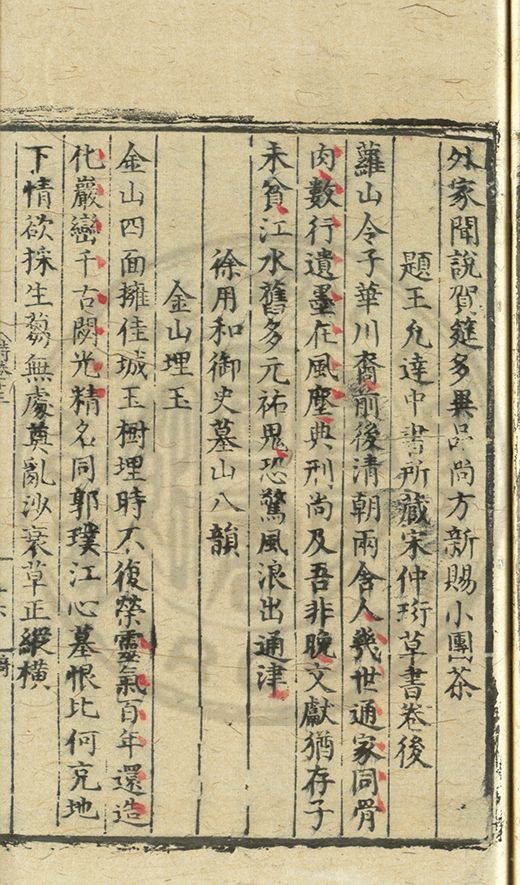 外家聞說賀筵多異品尚方新賜小團茶
題王允達中書所藏宋仲珩草書卷後
蘿山令子華川裔前後清朝兩舍人幾世通家同骨
肉數行遺墨在風塵典刑尚及吾非晚文獻猶存子
未貧江水舊多元祐鬼恐驚風浪出通津
徐用和御史墓山八韻
金山埋玉
金山四面擁佳城玉樹埋時不復榮靈氣百年還造
化巖巒千古閟光精名同郭璞江心墓恨比何充地
下情欲採生芻無處奠亂沙衰草正縱橫